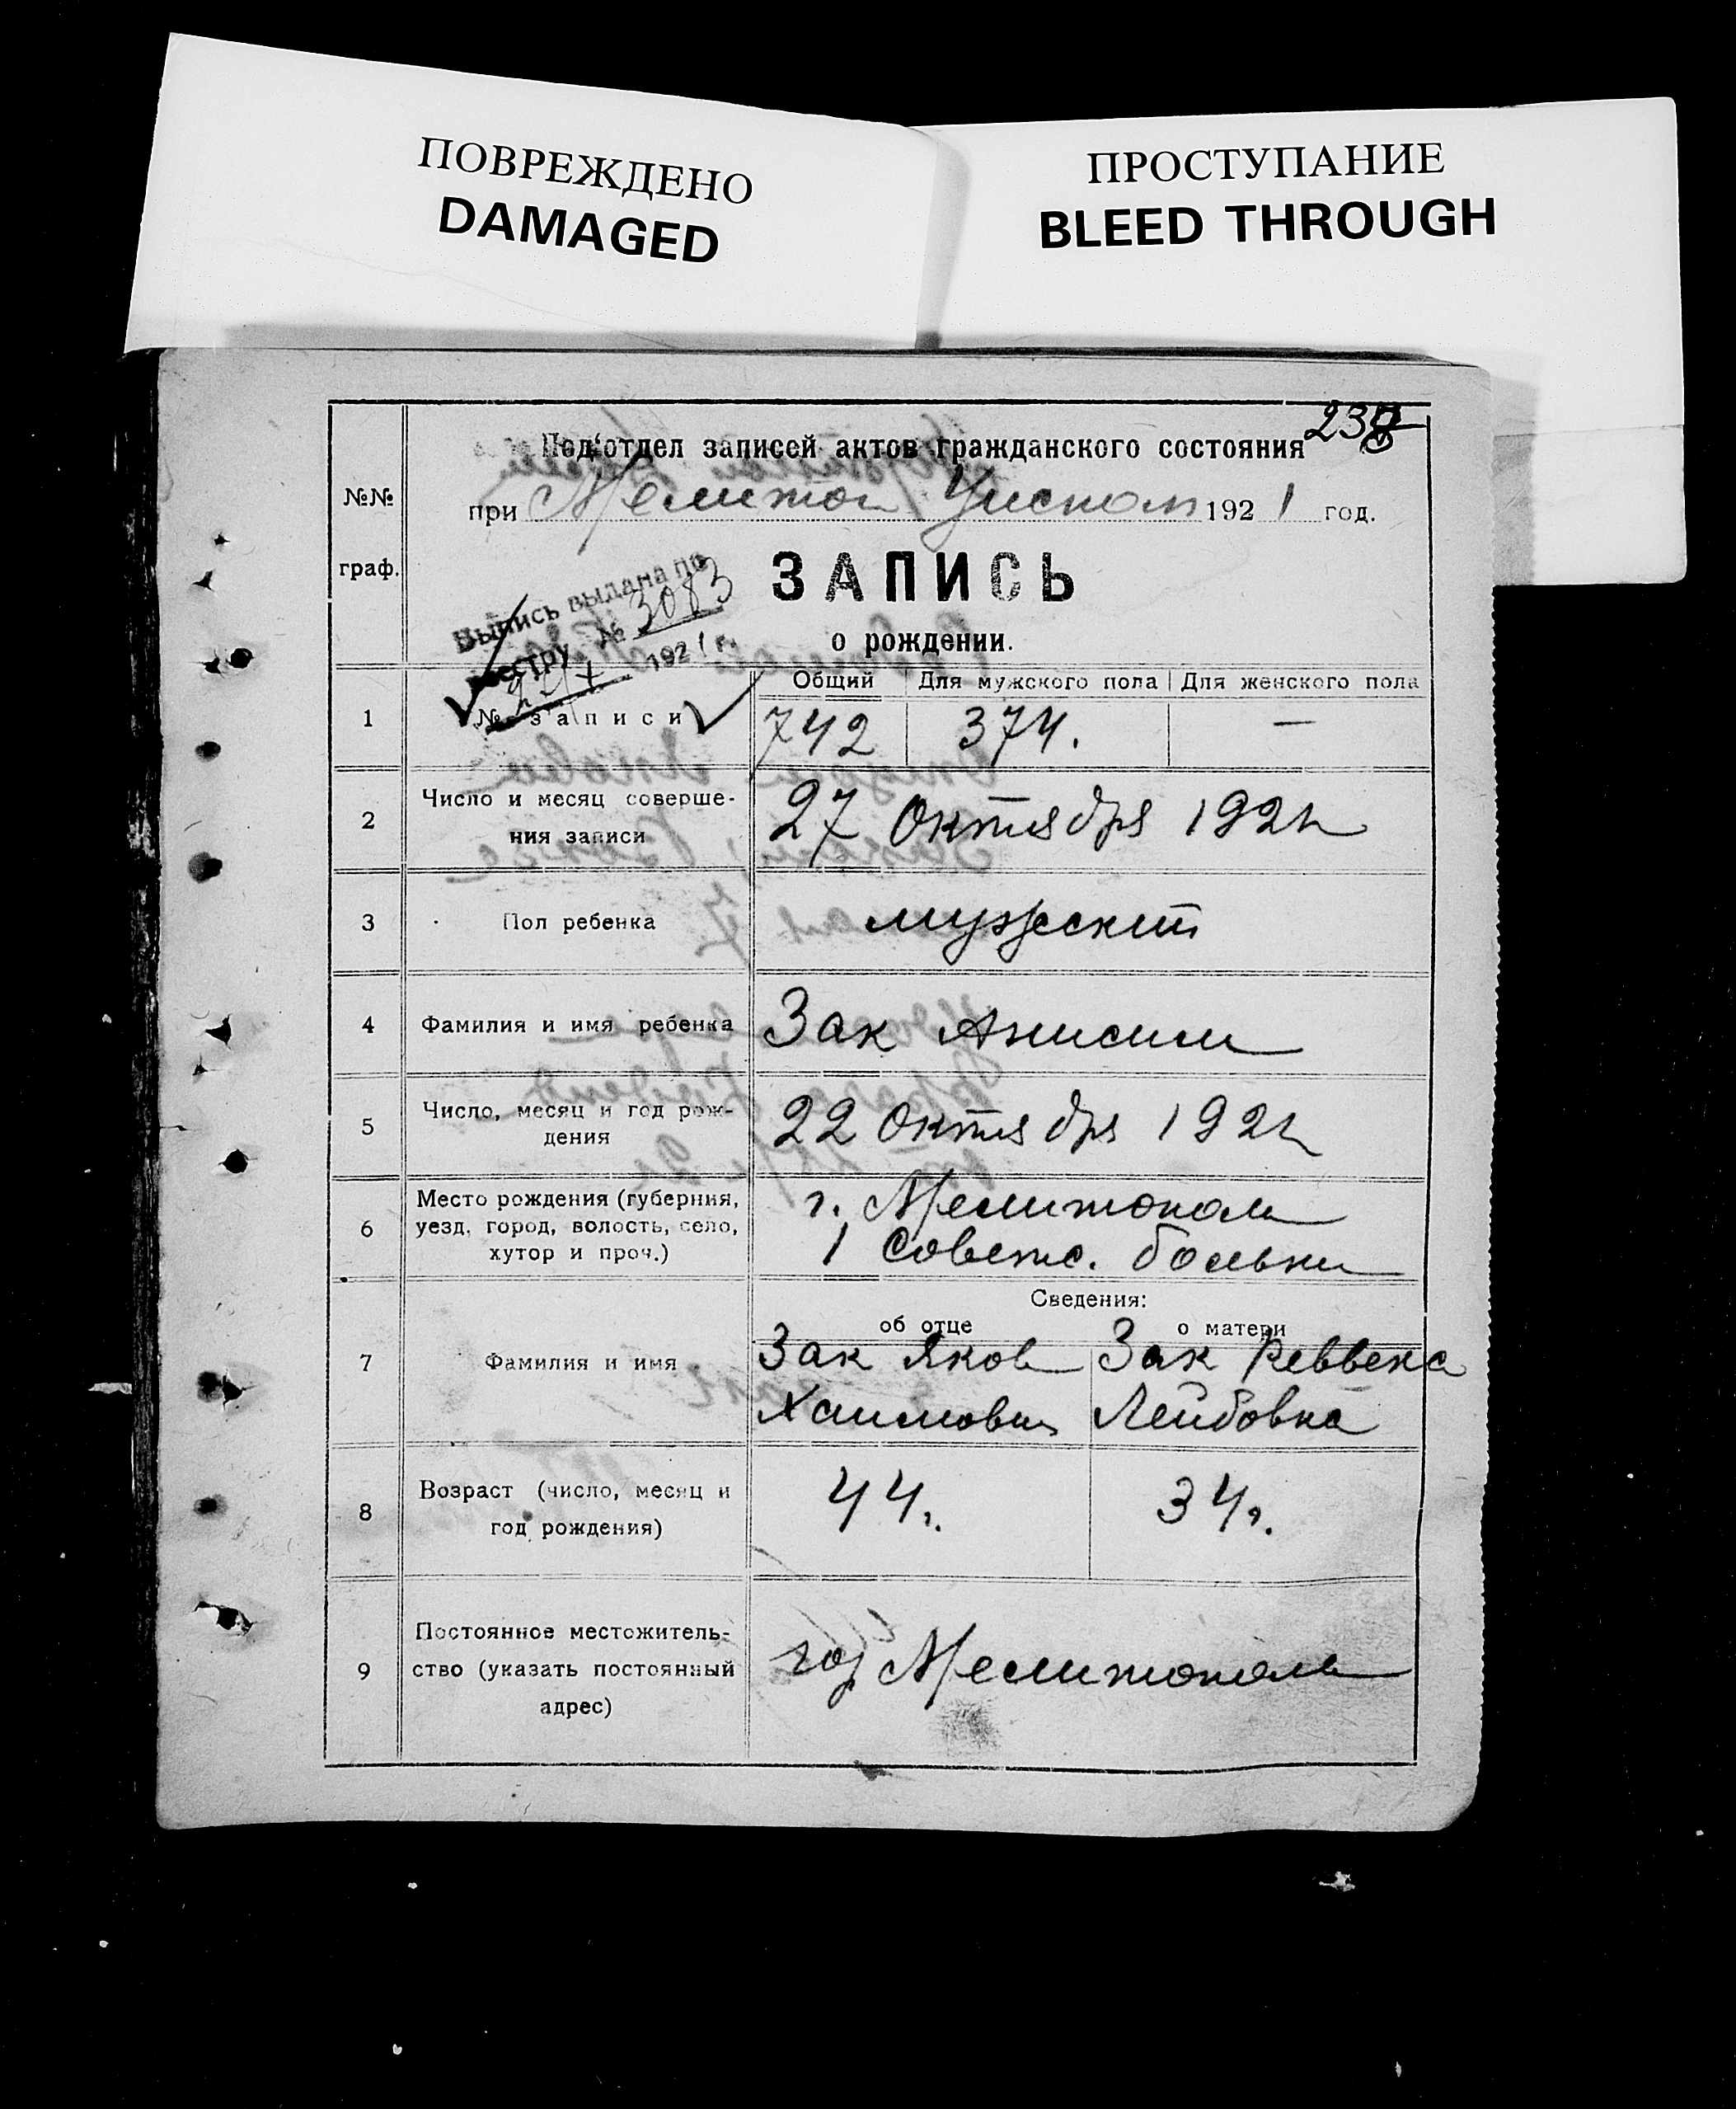 ПОВРЕЖДЕНО
DAMAGED
ПРОСТУПАНИЕ
BLEED THROUGH
Под‘отдел записей актов гражданского состояния
№№
граф.
при Мелитоп Уисполк 1921 год.
Выпись выдана по
реестру № 3083
1921 г.
ЗАПИСЬ
о рождении.
Общий Для мужского пола Для женского пола
1 № записи 742 374. —
2 Число и месяц соверше-
ния записи 27 Октября 1921
3 Пол ребенка мужской
4 Фамилия и имя ребенка Зак Анисим
5 Число, месяц и год рож-
дения 22 Октября 1921
6 Место рождения (губерния,
уезд, город, волость, село,
хутор и проч.)
г. Мелитополь
1 Советс. больни
Сведения:
об отце о матери
7 Фамилия и имя
Зак Яков Зак Реввека
Хаимович Лейбовна
8 Возраст (число, месяц и
год рождения)
44 г. 34 г.
9 Постоянное местожитель-
ство (указать постоянный
адрес)
гор Мелитополь